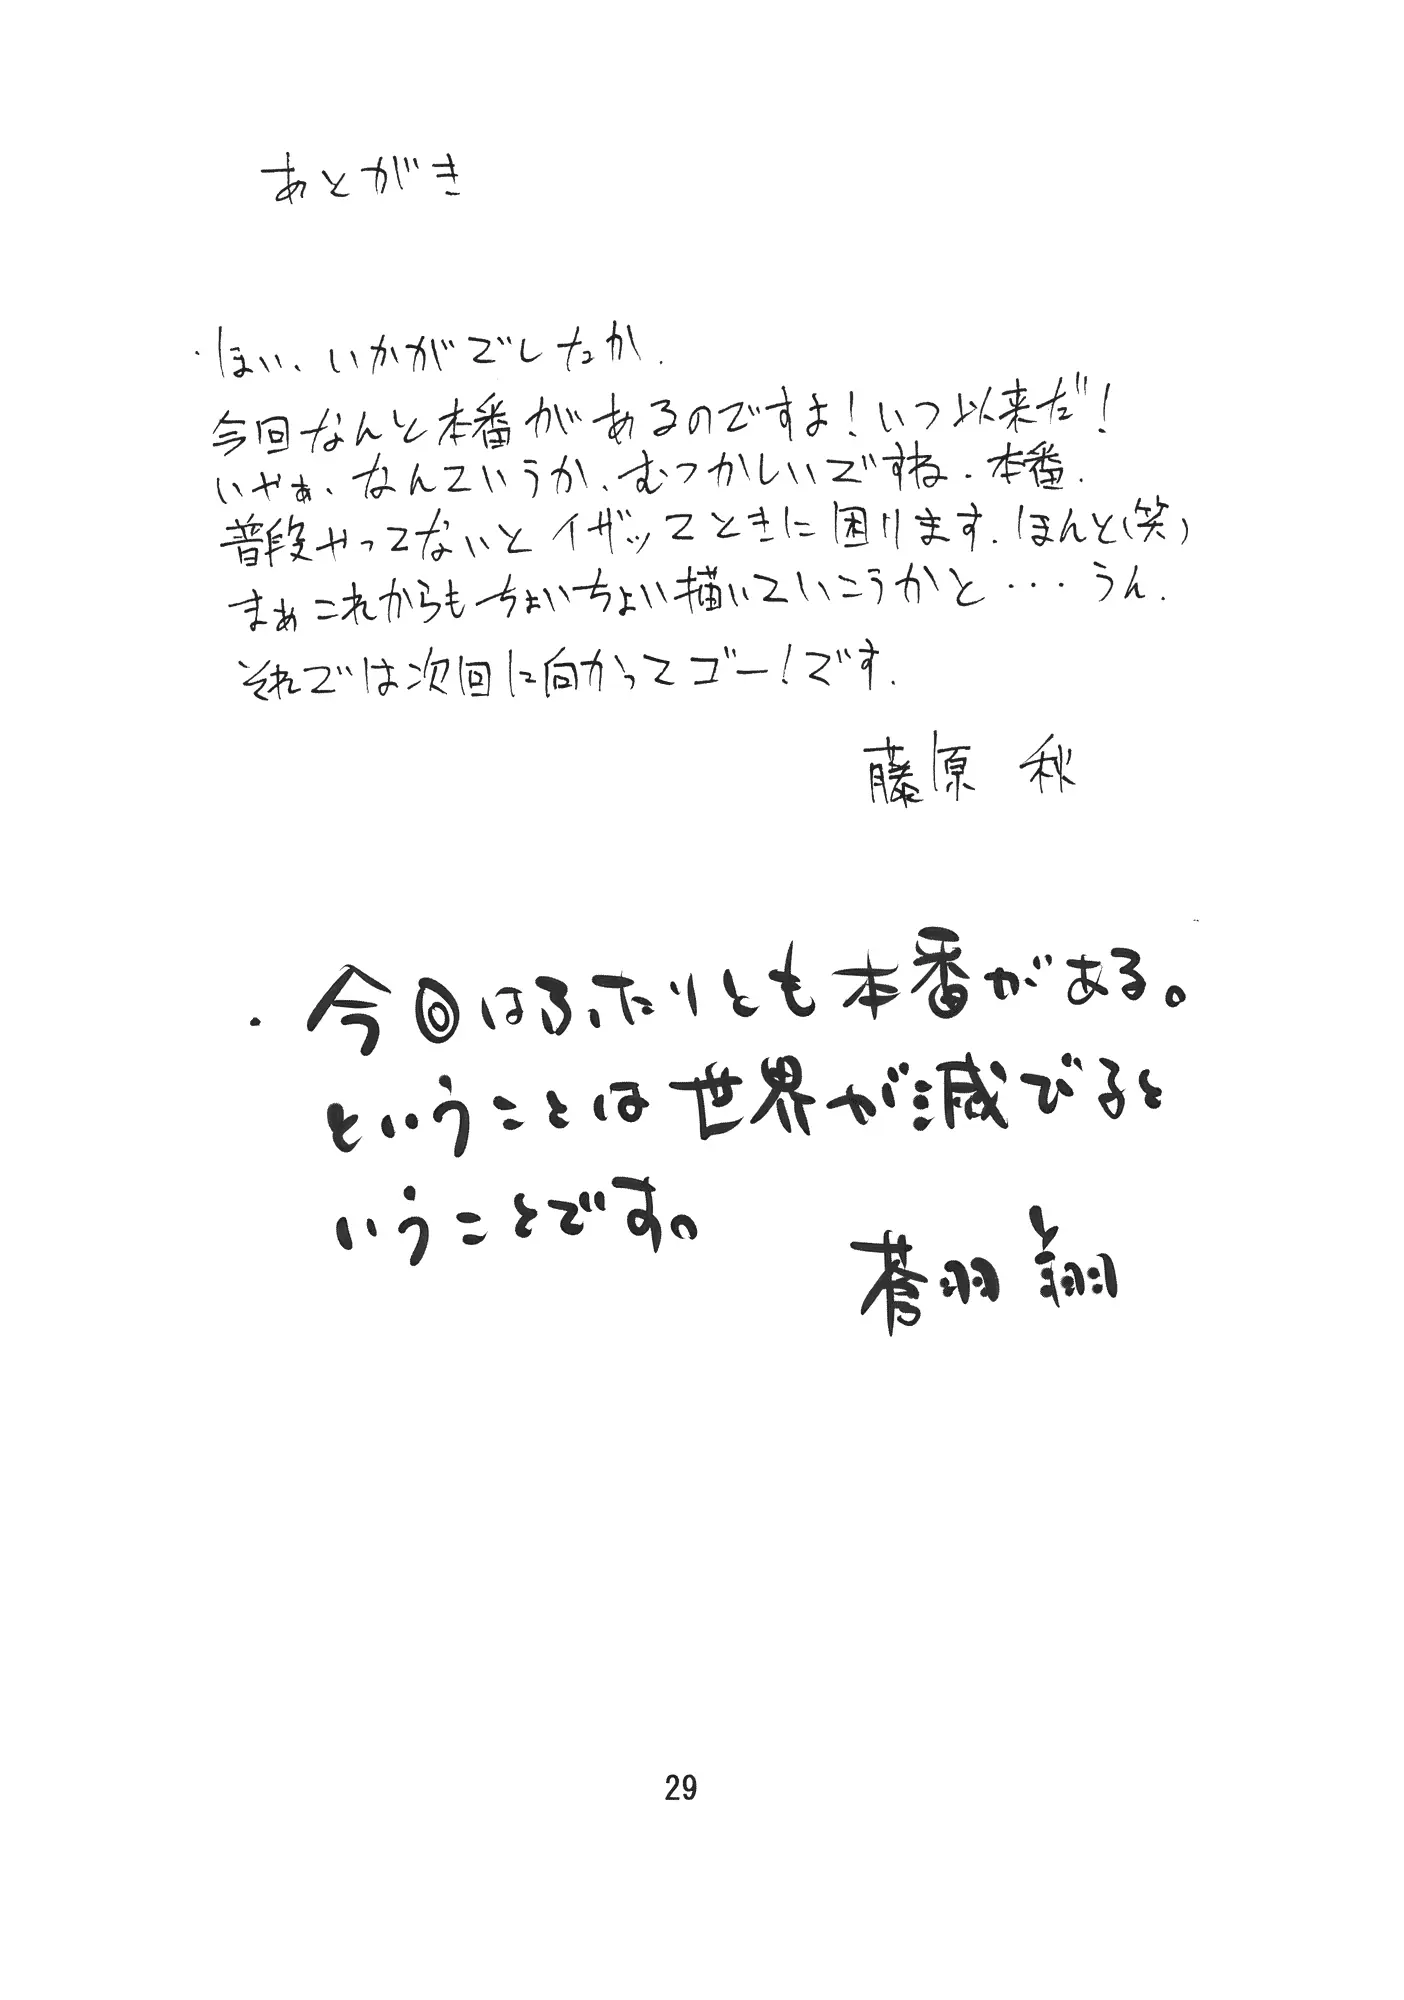 あとがき
・ほい、いかがでしたか.
今回なんと本番があるのですよ!いつ以来だ!
いやぁ、なんていうか、むつかしいですね.本番.
普段やってないとイザッてときに困ります.ほんと(笑)
まぁこれからもちょいちょい描いていこうかと・・・うん.
それでは次回に向かってゴー!です.
藤原 秋
・今回はふたりとも本番がある。
ということは世界が滅びると
いうことです。
蒼羽 翔
と
29